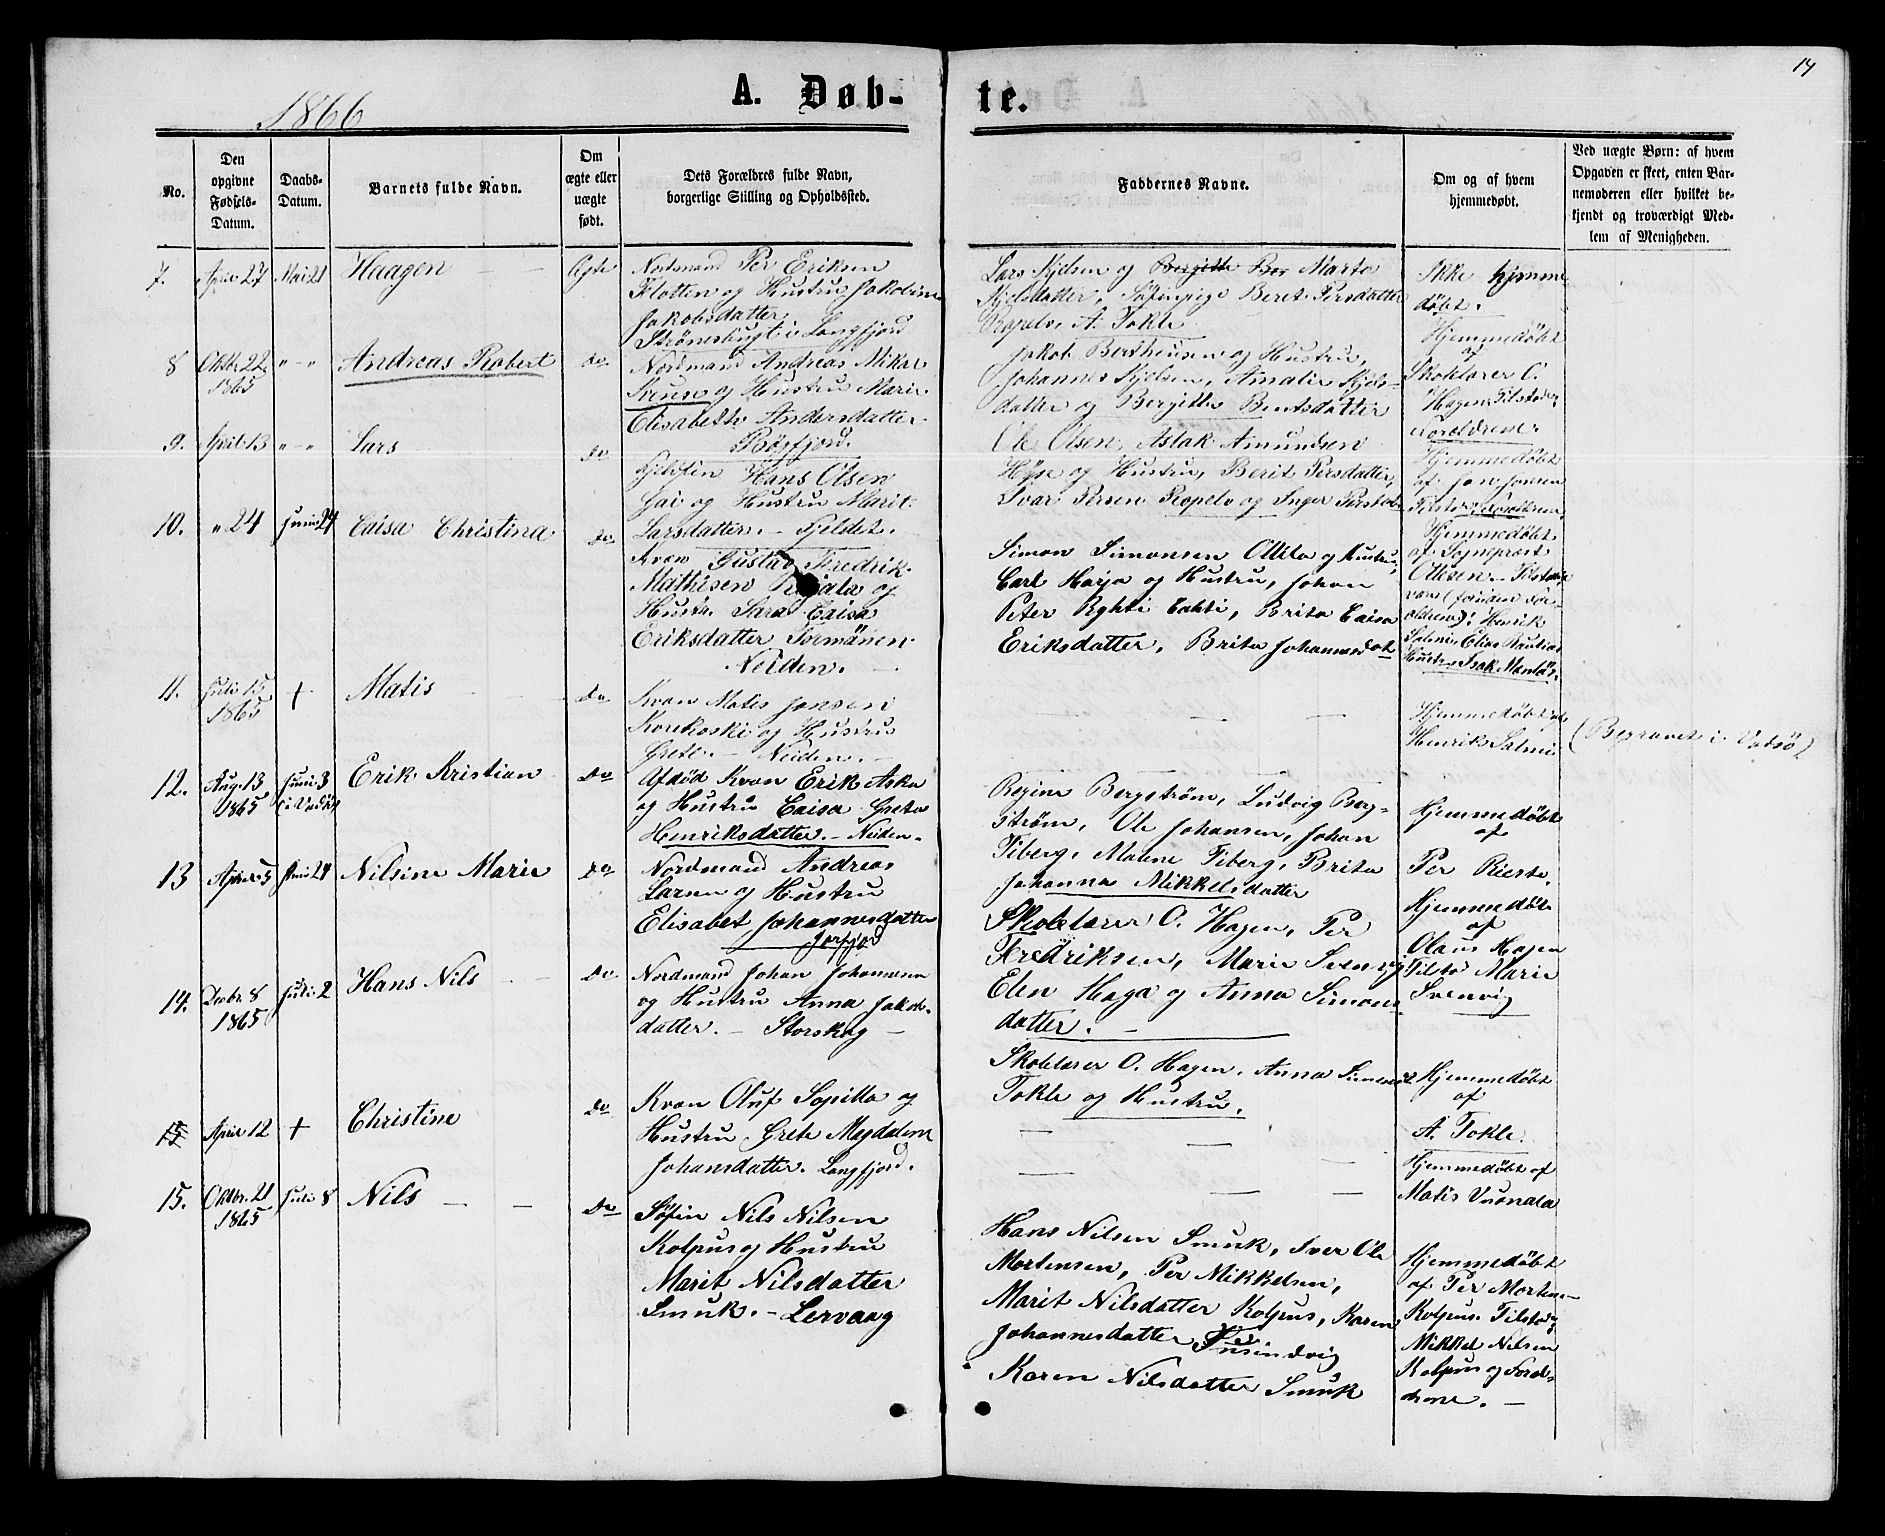 14
1866
A. Døb-
te.
No.
Den
opgivne
Fødsels-
Datum.
Daabs-
Datum.
Barnets fulde Navn.
Om
ægte eller
uægte
født.
Dets Forældres fulde Navn,
borgerlige Stilling og Opholdssted.
Faddernes Navne.
Om og af hvem
hjemmedøbt.
Ved uægte Børn: af hvem
Opgaven er skeet, enten Bar-
nemoderen eller hvilket be-
kjendt og troværdigt Med-
lem af Menigheden.
7.
April 27
Mai 21
Haagen
Ægte
Nordmand Per Eriksen
Flotten og Hustru Jakobine
Jakobsdatter
Strønesbugt i Langfjord
Lars Kjelsen og Bergitte Ber Marta
Kjelsdatter, Søfinpige Beret Persdatter
Piopelv, A. Tokle
Ikke hjemme
døbt.
8
Oktbr 22
1865
" - "
Andreas Robert
do
Nordmand Andreas Mikal
og Hustru Marie
Elisabeth Andersdatter
Bøgfjord.
Jakob Bertheusen og Hustru,
Johannes Kjelsen, Amalie Kjels-
datter og Bergitte Bentsdatter
Hjemmedøbt
af
Skolelærer O.
Hagen. Tilstede
Forældrene.
9.
April 13
" - "
Lars
do
Fjeldfin Hans Olsen
Jai og Hustru Marit
Larsdatter. - Fjeldet.
Ole Olsen, Aslak Amundsen
Hyse og Hustru, Berit Persdatter,
Ivar Persen Piopelv og Inger Persdat
Hjemmedøbt
af Jon Jonsen
Tilstede Forældrene.
10.
" 24
Juni 24
Caisa Christina
do
Kvæn Gustav Fredrik
Mathisen og
Hustr. Sara Caisa
Eriksdatter Tormänen
Neiden.
Simon Simonsen Ollila og Hustru,
Carl Harja og Hustru, Johan
Peter Ryhti Lahti, Brita Caisa
Eriksdatter, Brita Johannesdat
Hjemmedøbt
af Sognepræst
Ottesen. Tilstede
vare (foruden For-
ældrene): Henrik
Salmi, Elias Rautios
Hustru, Isak Mantös.
11.
Juli 15
1865
+
Matis
do
Kvæn Matis Jonsen
Korekoski og Hustru
Grete. - Neiden.
Hjemmedøbt af
Henrik Salmi
(Begravet i Vadsö)
12.
Aug. 13
1865
Juni 3
(i Vadsö)
Erik Kristian
do
Afdød Kvæn Erik Aska
og Hustru Caisa Greta
Henriksdatter. - Neiden.
Regine Bergstrøm, Ludvig Berg-
strøm, Ole Johansen, Johan
Fiberg, Malene Fiberg, Brita
Johanna Mikkelsdatter
Hjemmedøbt
af
Per Rieste.
13
April 5
Juni 24
Nilsine Marie
do
Nordmand Andreas
Larsen og Hustru
Elisabet Johannesdatter
Jarfjord
Skolelærer O. Hagen, Per
Fredriksen, Marie Svenvig
Elen Haga og Anna Simons-
datter.
Hjemmedøbt
af
Olaus Hagen
Tilst. Marie
Svenvig
14.
Decbr. 8
1865
Juli 2
Hans Nils
do
Nordmand Johan Johannesen
og Hustru Anna Jakob-
datter. - Storskog -
Skolelærer O. Hagen, Anna Simonsdt
Tokle og Hustru.
Hjemmedøbt
af
A. Tokle.
15
April 12
+
Christine
do
Kvæn Oluf Sopilla og
Hustru Grete Magdalena
Johansdatter. Langfjord.
Hjemmedøbt af
Matis Vuonala
15.
Oktbr. 21
1865
Juli 8
Nils
do
Søfin Nils Nilsen
Kolpus og Hustru
Marit Nilsdatter
Smuk. - Lervaag
Hans Nilsen Smuk, Iver Ole
Mortensen, Per Mikkelsen,
Marit Nilsdatter Kolpus, Karen
Johannesdatter
Karen Nilsdatter Smuk
Hjemmedøbt
af Per Morten-
Kolpus. Tilstede
Mikkel Nilsen
Kolpus og Foræl-
drene. -